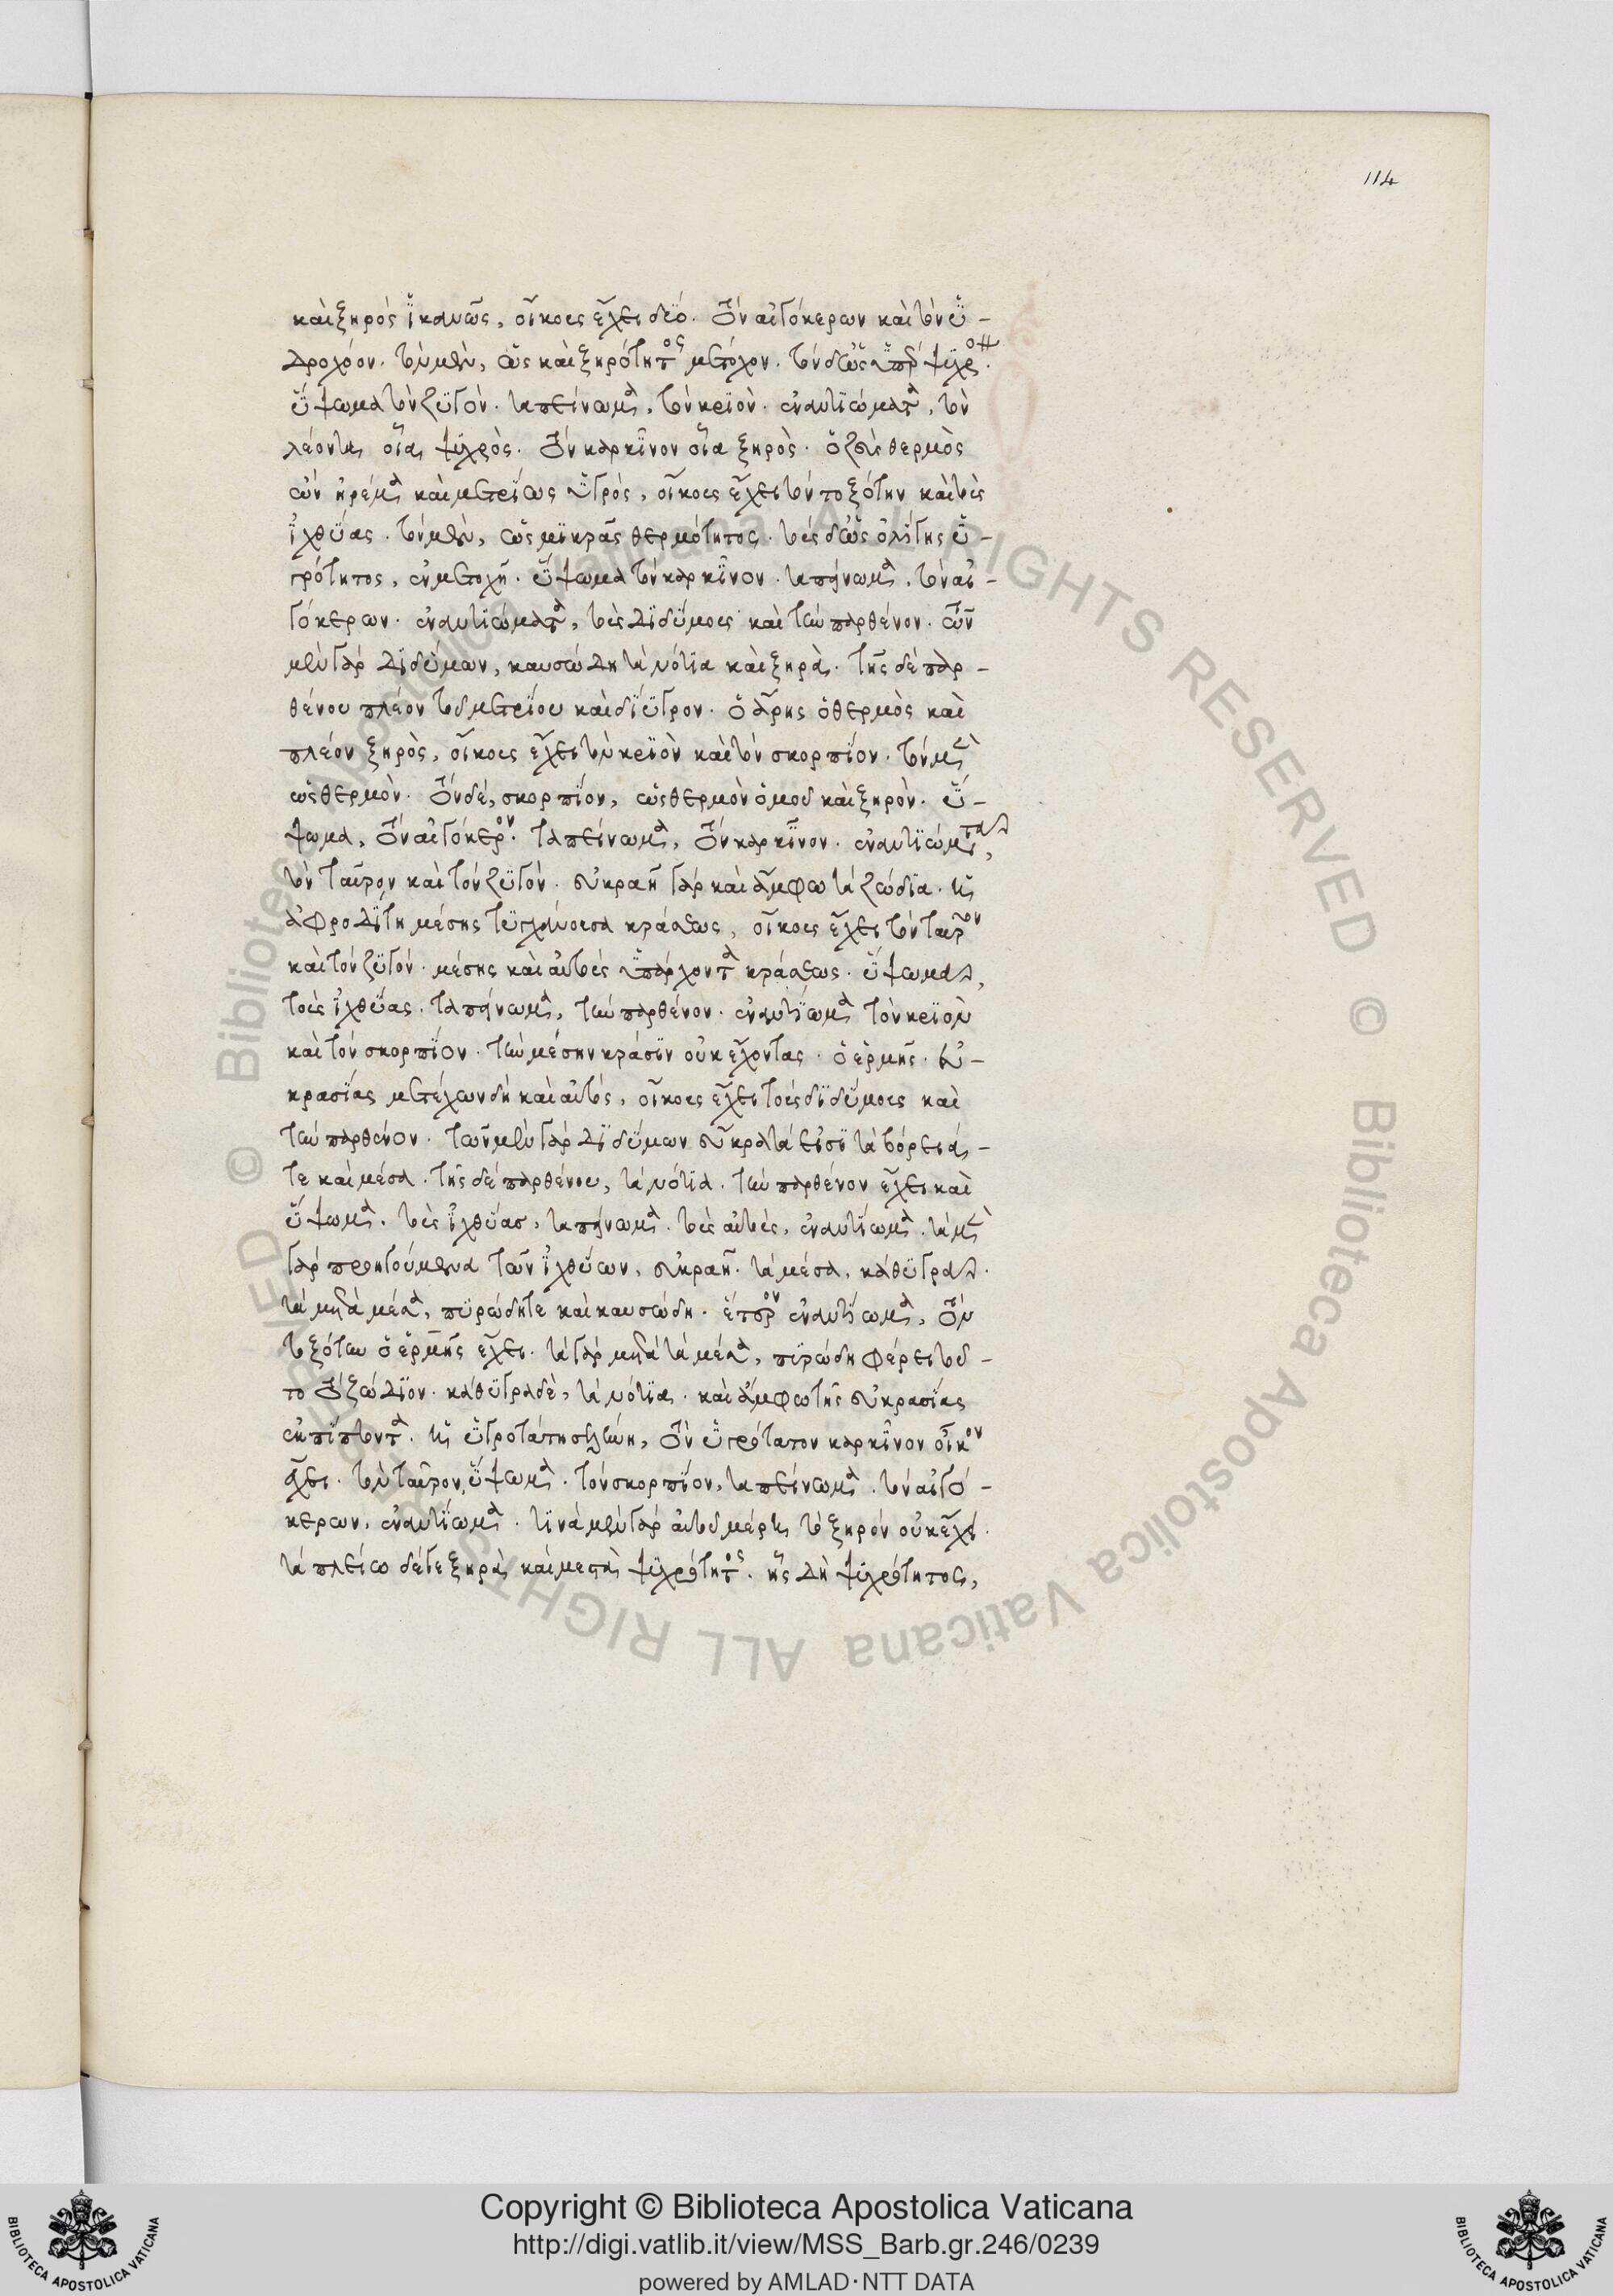 114
καὶ ξηρὸς ἱκανῶς, οἴκους ἔχει δύο. τὸν αἰγόκερων καὶ τὸν ὑ-
δροχόον. τὸν μὲν, ὡς καὶ ξηρότητος μέτοχον. τὸν δ ὡς
ὕψωμα τὸν ζυγόν. ταπείνωμα, τὸν κριόν. ἐναντιώματα, τὸν
λέοντα οἷα ψυχρὸς. τὸν καρκίνον οἷα ξηρὸς. ὁ ζεὺς θερμὸς
ὢν ἠρέμα καὶ μετρίως ὑγρὸς, οἴκους ἔχει τὸν τοξότην καὶ τοὺς
ἰχθύας. τὸν μὲν, ὡς μικρᾶς θερμότητος. τοὺς δ ὡς ὀλίγης ὑ-
γρότητος, ἐν μετοχῇ. ὕψωμα τὸν καρκίνον. ταπείνωμα, τὸν αἰ-
γόκερων. ἐναντιώματα, τοὺς διδύμους καὶ τὴν παρθένον. τῶν
μὲν γὰρ διδύμων, καυσώδη τὰ νότια καὶ ξηρὰ. τῆς δὲ παρ-
θένου πλέον τοῦ μετρίου καὶ δίυγρον. ὁ ἄρης ὁ θερμὸς καὶ
πλέον ξηρὸς, οἴκους ἔχει τὸν κριὸν καὶ τὸν σκορπίον. τὸν μὲν
ὡς θερμὸν. τὸν δὲ, σκορπίον, ὡς θερμὸν ὁμοῦ καὶ ξηρὸν. ὕ-
ψωμα, τὸν αἰγόκερον. ταπείνωμα, τὸν καρκίνον. ἐναντιώματα,
τὸν ταῦρον καὶ τὸν ζυγόν. εὐκραῆ γὰρ καὶ ἄμφω τὰ ζώδια. ἡ
ἀφροδίτη μέσης τυγχάνουσα κράσεως, οἴκους ἔχει τὸν ταῦρον
καὶ τὸν ζυγόν. μέσης καὶ αὐτοὺς ὑπάρχοντα κράσεως. ὕψωμα,
τοὺς ἰχθύας. ταπείνωμα, τὴν παρθένον. ἐναντίωμα τὸν κριὸν
καὶ τὸν σκορπίον. τὴν μέσην κράσιν οὐκ ἔχοντας. ὁ ἑρμῆς. εὐ-
κρασίας μετέχων δὴ καὶ αὐτός, οἴκους ἔχει τοὺς διδύμους καὶ
τὴν παρθένον. τῶν μὲν γὰρ διδύμων εὔκρατά εἰσι τὰ βόρειά-
τε καὶ μέσα. τῆς δὲ παρθένου, τὰ νότια. τὴν παρθένον ἔχει καὶ
ὕψωμα. τοὺς ἰχθύας, ταπείνωμα. τοὺς αὐτοὺς, ἐναντίωμα. τὰ μὲν
γὰρ προηγούμενα τῶν ἰχθύων, εὐκραῆ. τὰ μέσα, κάθυγρα.
τὰ μετὰ μέσα, πυρώδητε καὶ καυσώδη. ἕτερον ἐναντίωμα, τὸν
τοξότην ὁ ἑρμῆς ἔχει. τὰ γὰρ μετὰ τὰ μέσα, πυρώδη φέρει τοῦ-
το τὸ ζώδιον. κάθυγρα δὲ, τὰ νότια. καὶ ἄμφω τῆς εὐκρασίας
ἐκπίπτοντα. ἡ ὑγροτάτη σελήνη, τὸν ὑγρότατον καρκίνον οἶκον
ἔχει. τὸν ταῦρον, ὕψωμα. τὸν σκορπίον, ταπείνωμα. τὸν αἰγό-
κερων, ἐναντίωμα. τινὰ μὲν γὰρ αὐτοῦ μέρη τὸ ξηρὸν οὐκ ἔχει.
τὰ πλείω δέ γε ξηρὰ καὶ μεστὰ ψυχρότητος. ἧς δὴ ψυχρότητος,
Copyright © Biblioteca Apostolica Vaticana
http://digi.vatlib.it/view/MSS_Barb.gr.246/0239
powered by AMLAD·NTT DATA